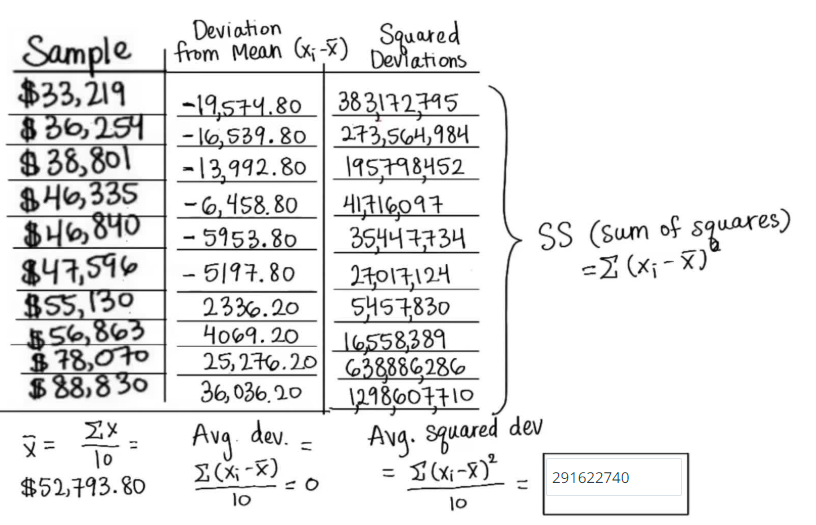 Sample Deviation from Mean (xᵢ-x̄) Squared Deviations
$33,219 -19,574.80 383,172,795
$36,254 -16,539.80 273,564,984
$38,801 -13,992.80 195,798,452
$46,335 -6,458.80 41,716,097
$46,840 -5953.80 35,447,734
$47,596 -5197.80 27,017,124
$55,130 2336.20 5,457,830
$56,863 4069.20 16,558,389
$78,070 25,276.20 638,886,286
$88,830 36,036.20 1,298,607,710
SS (sum of squares)
=Σ(xᵢ-x̄)²
x̄ = Σx/10 = $52,793.80
Avg. dev. = Σ(xᵢ-x̄)/10 = 0
Avg. squared dev = Σ(xᵢ-x̄)²/10 = 291622740